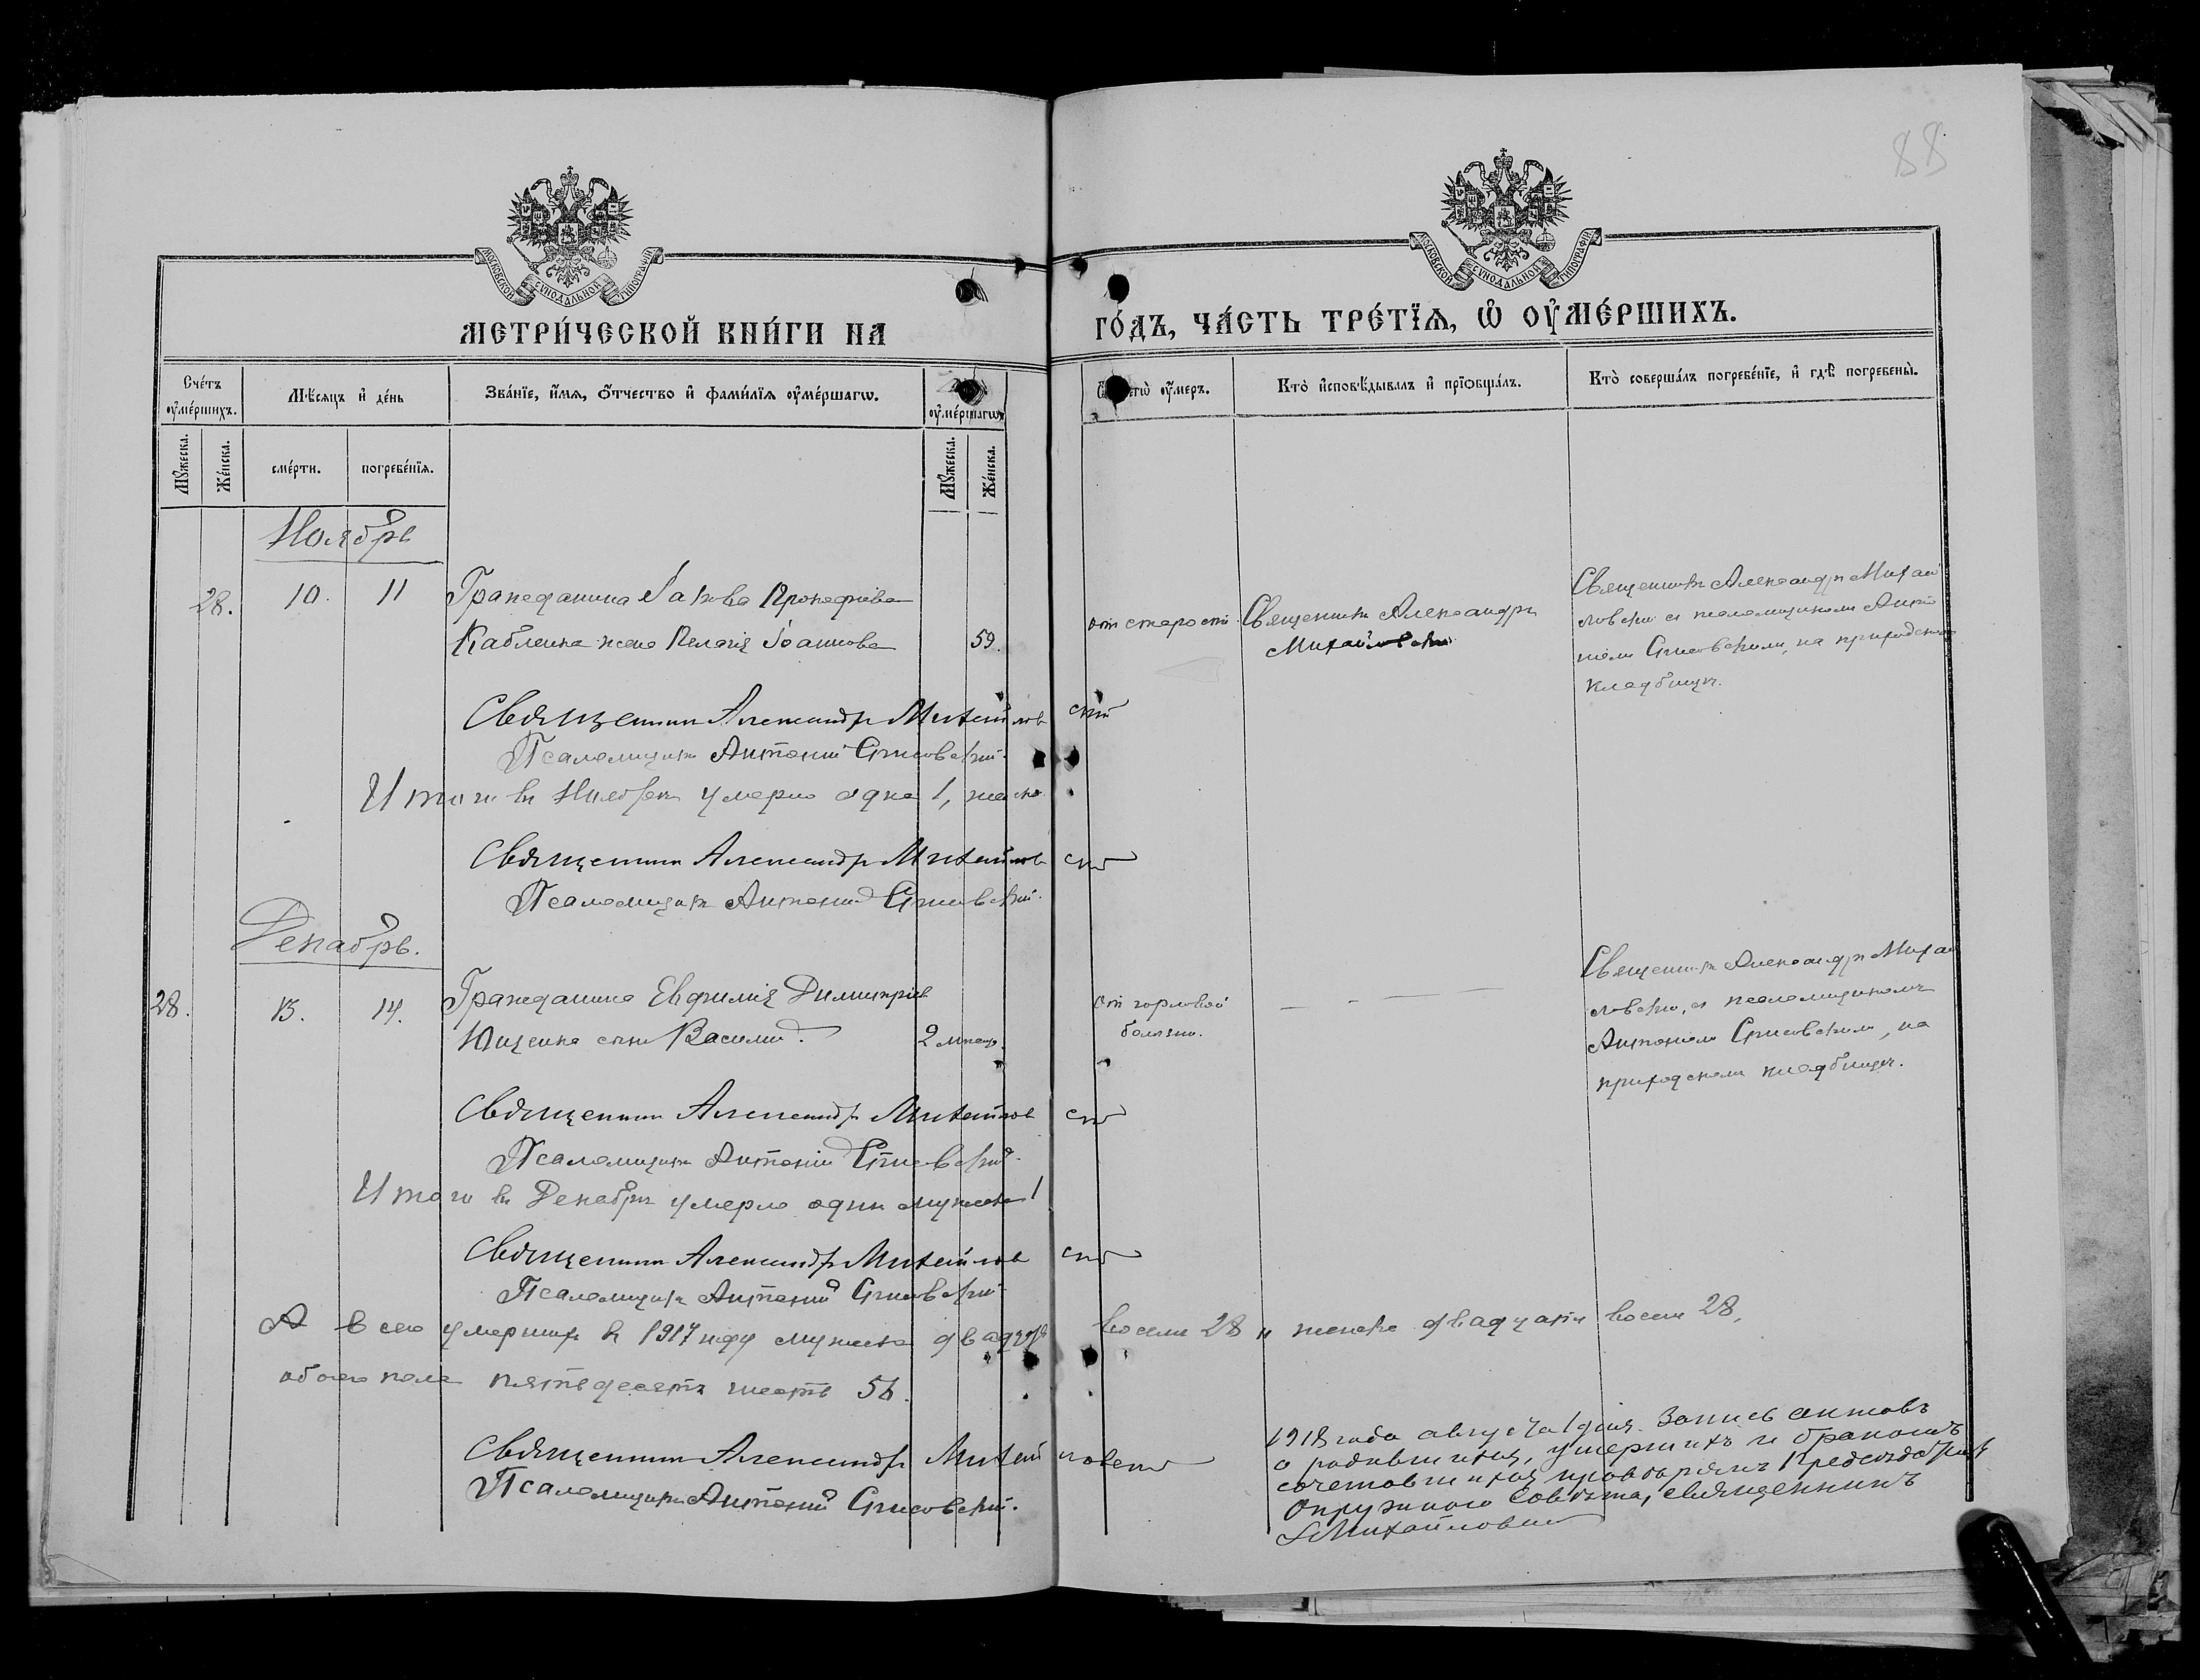 88
МОСКОВСКОЙ СУНОДАЛЬНОЙ ТИПОГРАФІИ
МОСКОВСКОЙ СУНОДАЛЬНОЙ ТИПОГРАФІИ
МЕТРИ́ЧЕСКОЙ КНИ́ГИ НА
ГО́ДЪ, ЧА́СТЬ ТРЕ́ТЇѦ, Ѡ҆ ОУ҆МЕ́РШИХЪ.
Сче́тъ оу҆ме́ршихъ.
Мѣ́сяцъ и҆ де́нь
Зва́нїе, и҆́мѧ, ѻ҆́тчество и҆ фами́лїѧ оу҆ме́ршагѡ.
оу҆ме́ршагѡ
оу҆́меръ.
Кто̀ и҆сповѣ́дывалъ и҆ прїѻбща́лъ.
Кто̀ соверша́лъ погребе́нїе, и҆ гдѣ̀ погребены̀.
Мꙋ́жеска.
Же́нска.
сме́рти.
погребе́нїѧ.
Мꙋ́жеска.
Же́нска.
Ноябрь
28.
10.
11
Гражданина Іакова Прокофіева
Кабленка жена Пелагія Іоаннова
59.
отъ старости
Священникъ Александръ
Михайловскій
Священникъ Александръ Михай
ловскій съ псаломщикомъ Анто
ніемъ Списовскимъ, на приходском
кладбищѣ.
Священникъ Александръ Михайлов скій
Псаломщикъ Антоній Списовскій.
Итого въ Ноябрѣ умерло одна 1, женска.
Священникъ Александръ Михайлов скій
Псаломщикъ Антоній Списовскій.
Декабрь.
28.
13.
14.
Гражданина Евфимія Димитріев
Ющенка сынъ Василій.
2 мѣсяц.
отъ горловой
болѣзни.
Священникъ Александръ Михай
ловскій, съ псаломщикомъ
Антоніемъ Списовскимъ, на
приходскомъ кладбищѣ.
Священникъ Александръ Михайлов скій
Псаломщикъ Антоній Списовскій.
Итого въ Декабрѣ умерло одинъ мужска 1
Священникъ Александръ Михайлов скій
Псаломщикъ Антоній Списовскій
А всего умершихъ въ 1917 году мужска двадцать восемь 28 и женска двадцать восем 28,
обоего пола пятьдесятъ шесть 56.
Священникъ Александръ Михай ловскій
Псаломщикъ Антоній Списовскій.
1918 года августа 1 дня. Запись актовъ
о родившихся, умершихъ и бракомъ
сочетавшихся провѣрялъ Предсѣдатель
Окружного Совѣта, священникъ
Михайловскій